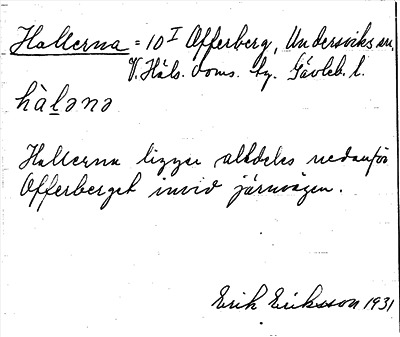 Hallerna = 10 I Offerberg, Undersviks sn.
V. Häls. doms. tg. Gävleb. l.
hàlənə
Hallerna ligger alldeles nedanför
Offerberget invid järnvägen.
Erik Eriksson 1931